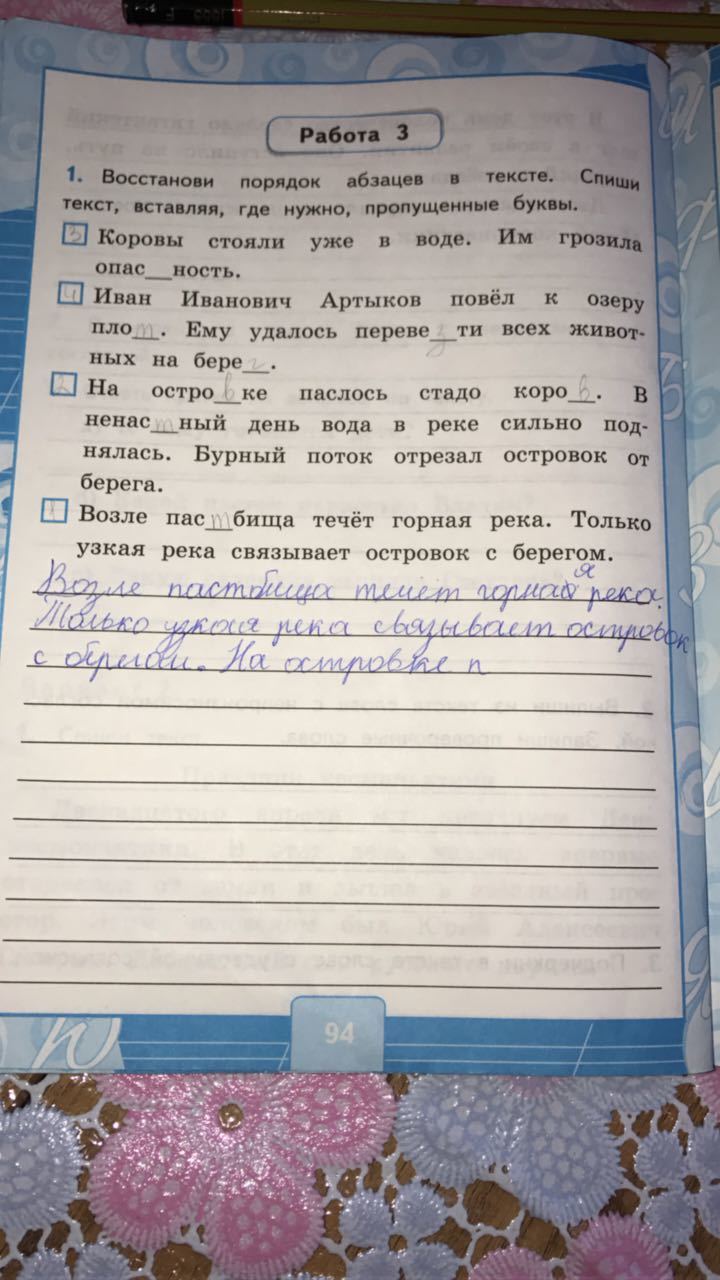 Работа 3
1. Восстанови порядок абзацев в тексте. Спиши
текст, вставляя, где нужно, пропущенные буквы.
3 Коровы стояли уже в воде. Им грозила
опас__ность.
4 Иван Иванович Артыков повёл к озеру
плот. Ему удалось перевезти всех живот-
ных на берег.
2 На островке паслось стадо коров. В
ненастный день вода в реке сильно под-
нялась. Бурный поток отрезал островок от
берега.
1 Возле пастбища течёт горная река. Только
узкая река связывает островок с берегом.
Возле пастбища течет горная река.
Только узкая река связывает островок
с обрегом. На островке п
94